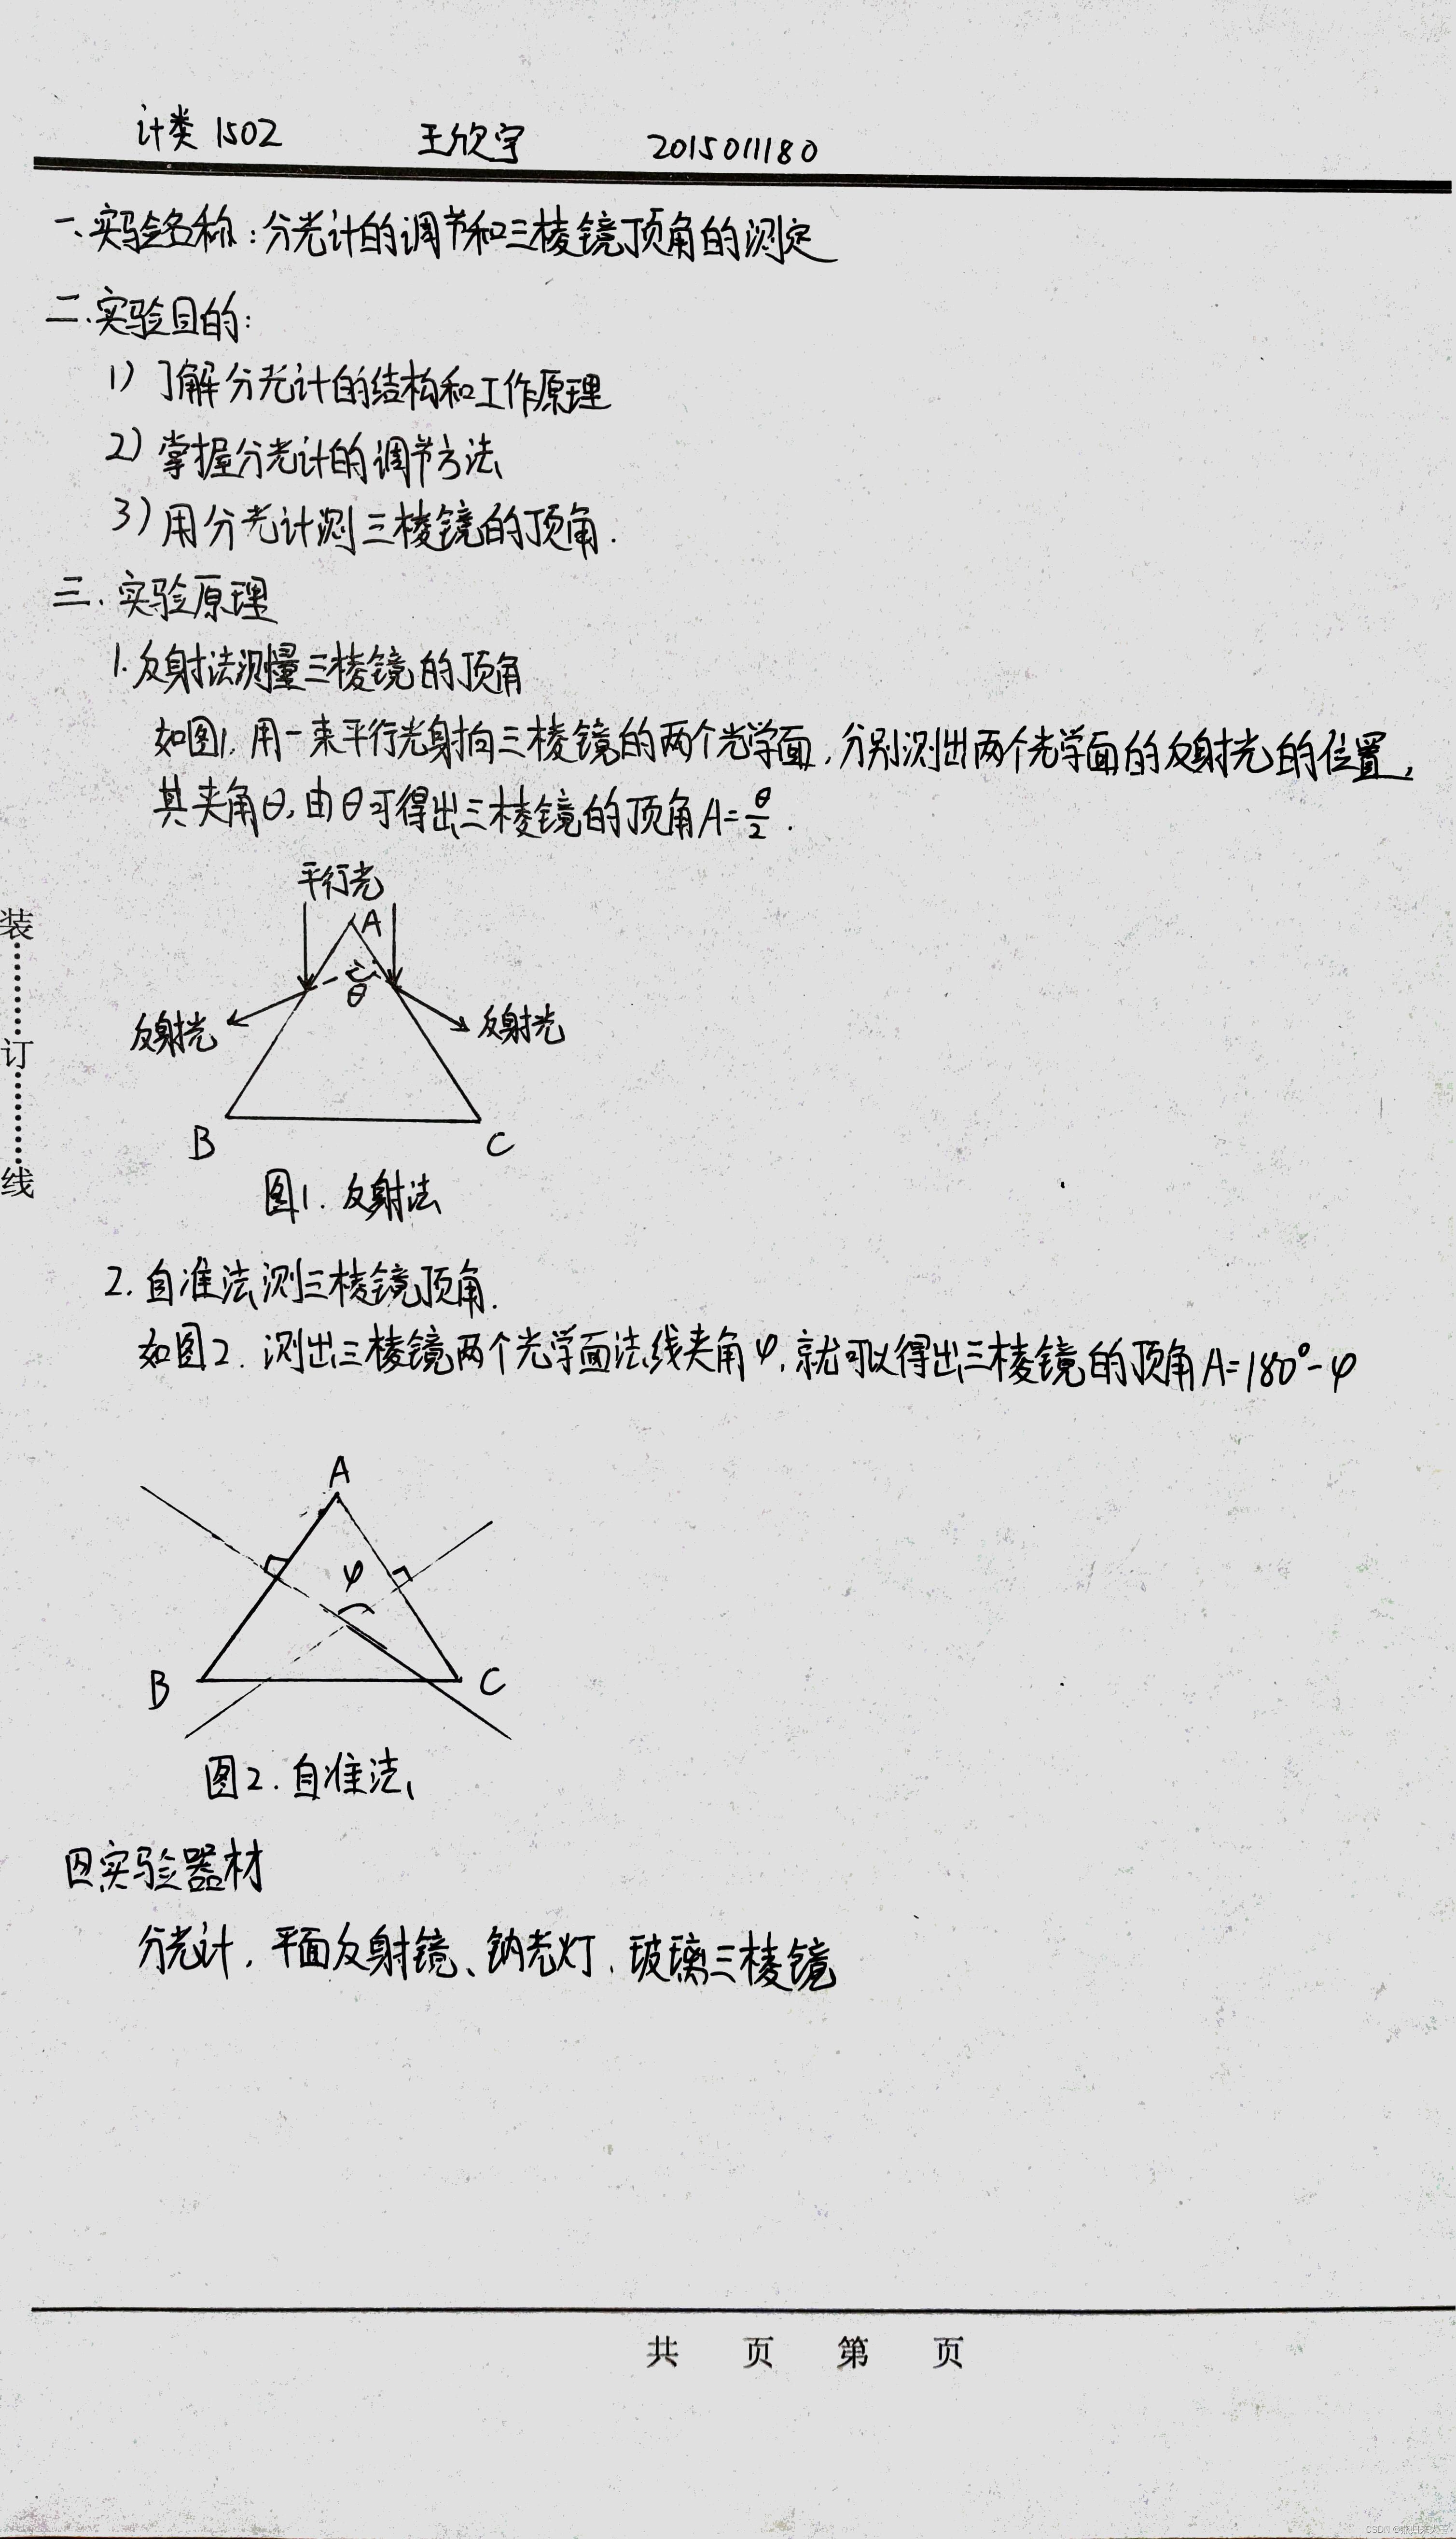 计类1502 王欣宇 2015011180
一、实验名称:分光计的调节和三棱镜顶角的测定
二.实验目的:
1) 了解分光计的结构和工作原理
2) 掌握分光计的调节方法
3) 用分光计测三棱镜的顶角.
三.实验原理
1.反射法测量三棱镜的顶角
如图1.用一束平行光射向三棱镜的两个光学面,分别测出两个光学面的反射光的位置,
其夹角θ,由θ可得出三棱镜的顶角A=θ/2.
平行光
A
θ
反射光 反射光
B C
图1.反射法
2.自准法测三棱镜顶角.
如图2.测出三棱镜两个光学面法线夹角φ,就可以得出三棱镜的顶角A=180°-φ
A
φ
B C
图2.自准法
四实验器材
分光计,平面反射镜、钠光灯、玻璃三棱镜
装
订
线
共 页 第 页